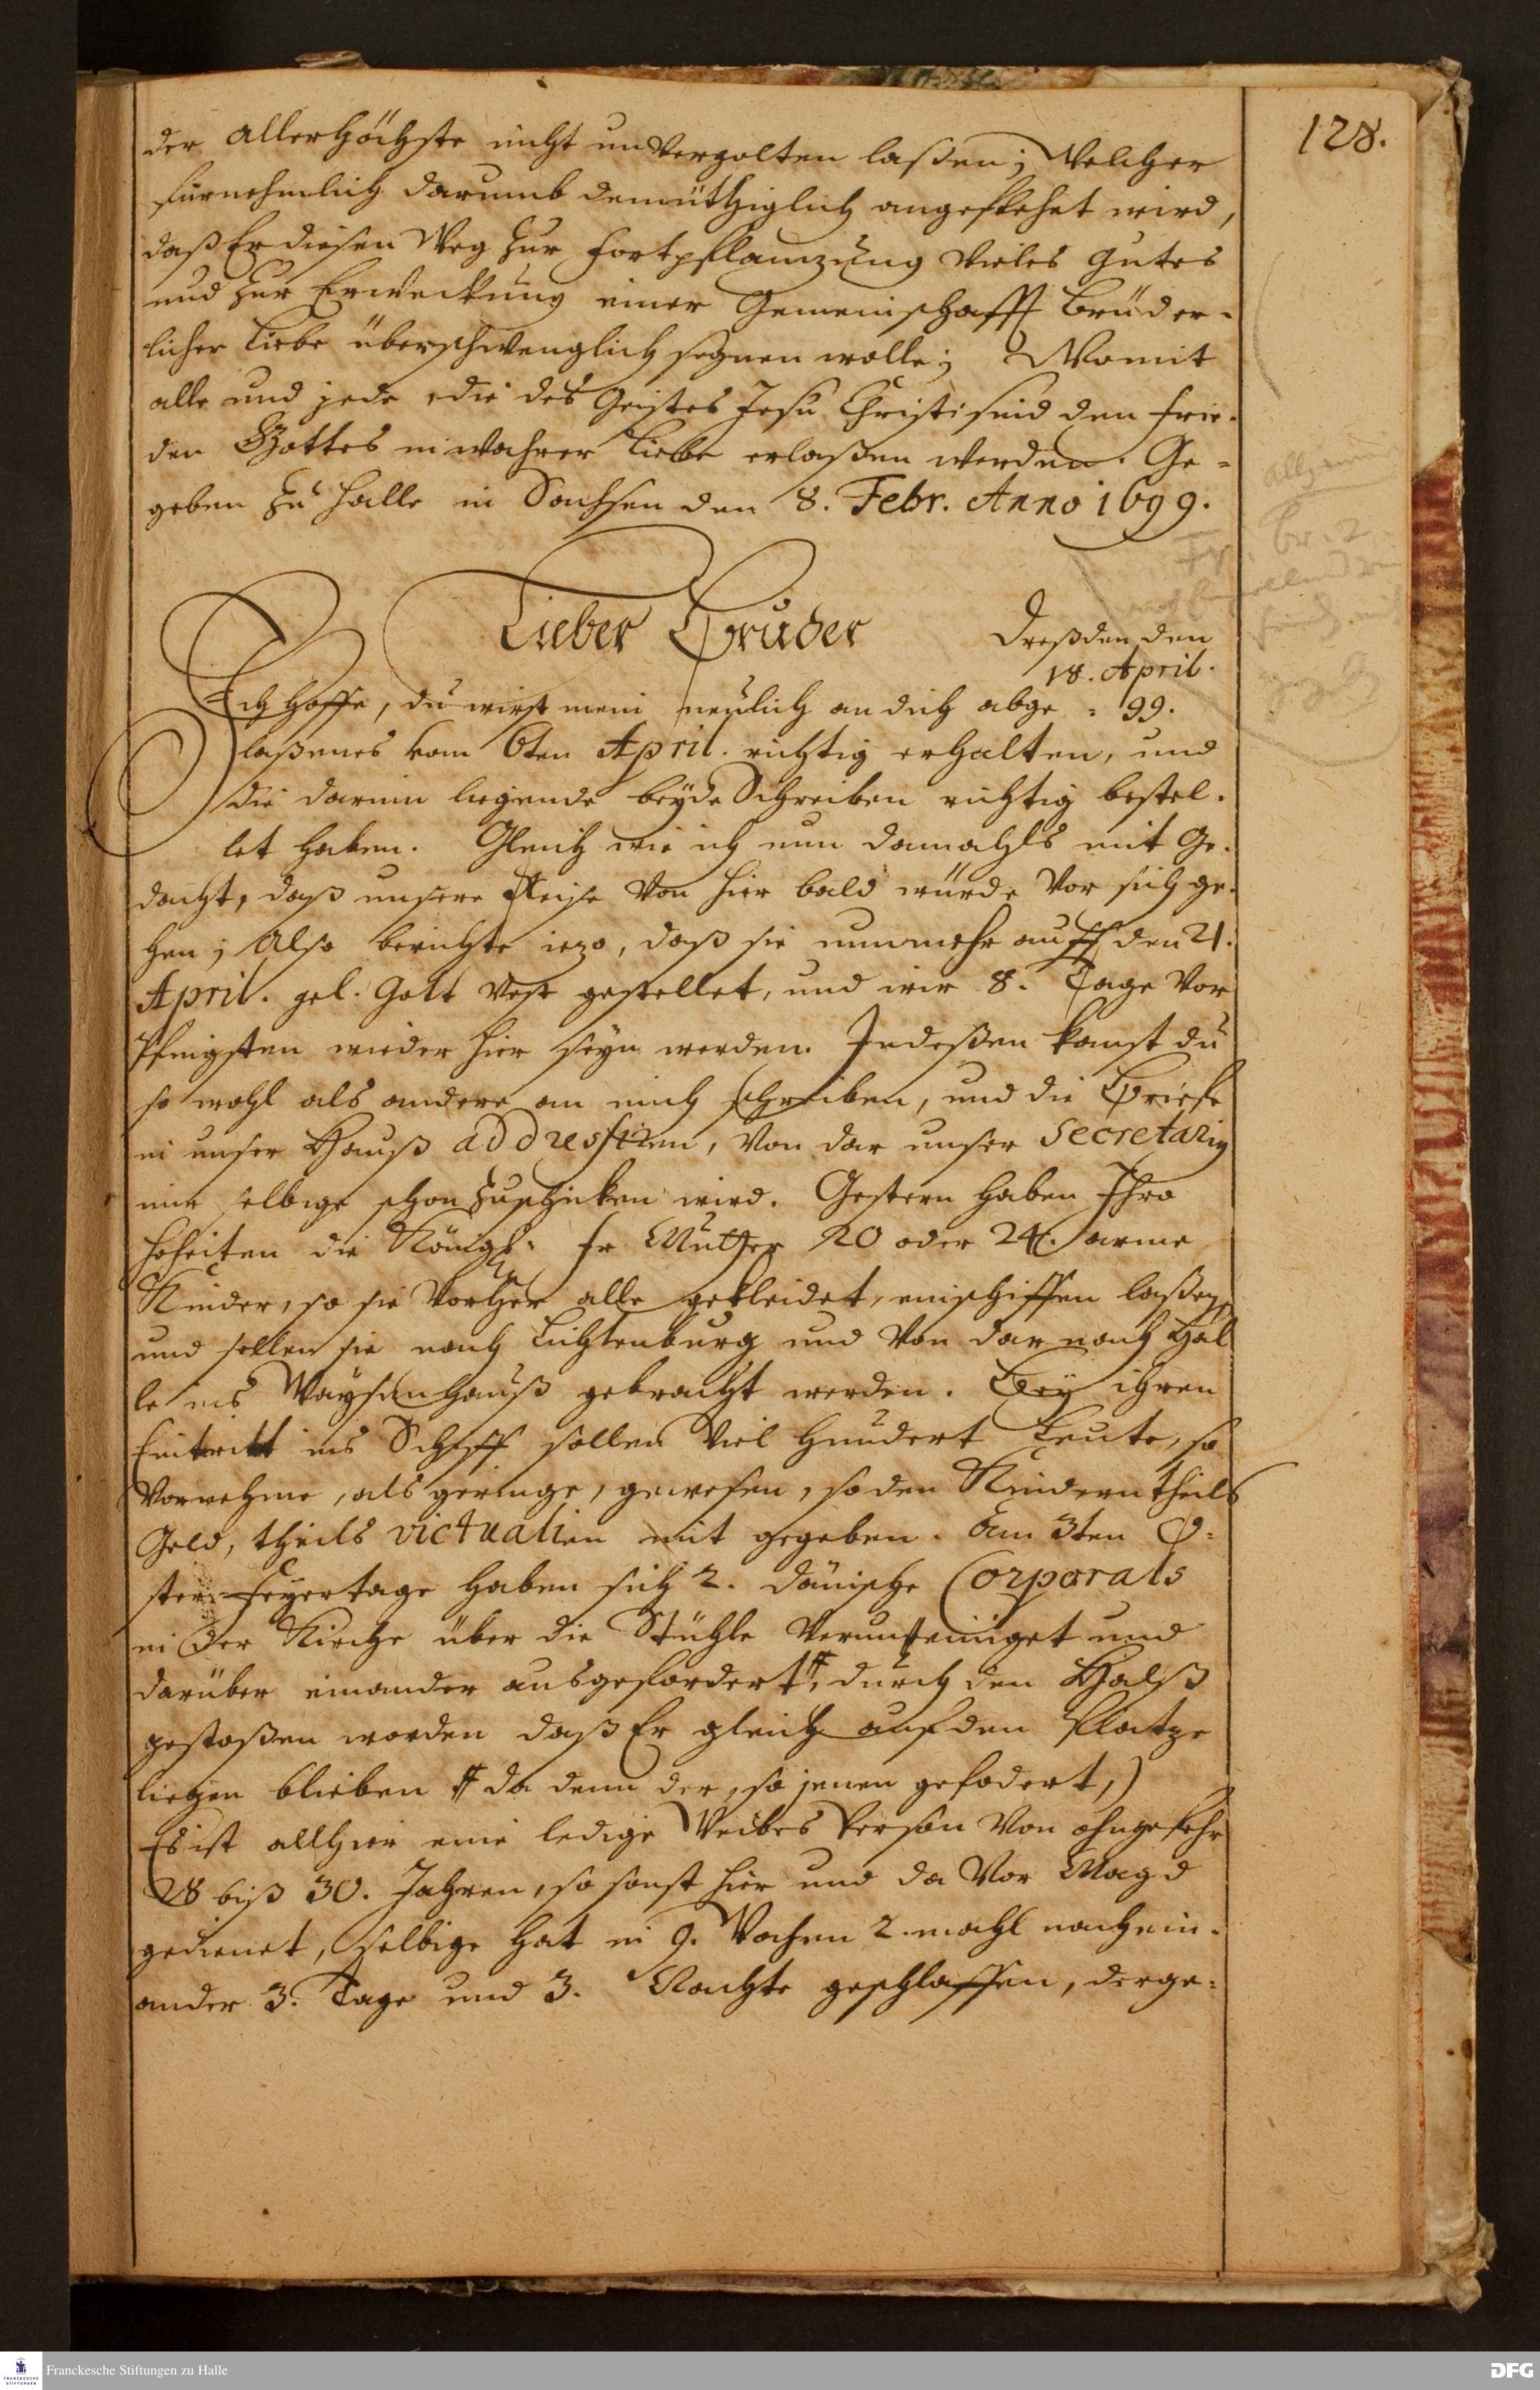 128.
der allerhöchste nicht unvergolten laßen; Welcher
fürnehmlich darumb demüthiglich angeflehet wird,
daß Er diesen Weg zur Fortpflantzung vieles Gutes
und zur Erweckung einer Gemeinschafft brüder-
licher Liebe überschwenglich segnen wolle; Womit
alle und jede, die des Geistes Jesu Christi sind den Frie-
den Gottes in wahrer Liebe erlaßen werden. Ge-
geben zu Halle in Sachsen den 8. Febr. Anno 1699.
Lieber Bruder
Dreßden den
18. April.
99.
Ich hoffe, du wirst mein neulich an dich abge-
laßenes vom 6ten April. richtig erhalten, und
die darinn liegende beyde Schreiben richtig bestel-
let haben. Gleich wie ich nun damahls mit Ge-
dacht, daß unsere Reise von hier bald würde vor sich ge-
hen; Also berichte iezo, daß sie nunmehr auff den 21.
April. gel. Gott vest gestellet, und wir 8. Tage vor
Pfingsten wieder hier seyn werden. Indeßen kanst du
so wohl als andere an mich schreiben, und die Briefe
in unser Hauß addressiren, von dar unser Secretarius
mir selbige schon zuschicken wird. Gestern haben Ihro
Hoheiten die Königl. Fr. Mutter 20 oder 24. arme
Kinder, so sie vorher alle gekleidet, einschiffen laßen,
und sollen sie nach Lichtenburg und von dar nach Hal
le ins Waysenhauß gebracht werden. Bey ihren
Eintritt ins Schiff sollen viel hundert Leute, so
Vornehme, als geringe, gewesen, so den Kindern theils
Geld, theils victualien mit gegeben. Am 3ten O-
ster-Feyertage haben sich 2. dänische Corporals
in der Kirche über die Stühle veruneiniget und
darüber einander ausgefordert #, durch den Halß
gestoßen worden daß Er gleich auf den Platze
liegen blieben # da denn der, so jenen gefodert,)
Es ist allhier eine ledige Weibes Person von ohngefehr
28 biß 30. Jahren, so sonst hier und da vor Magd
gedienet, selbige hat in 9. Wochen 2. mahl nach ein-
ander 3. Tage und 3. Nachte geschlaffen, derge-
Franckesche Stiftungen zu Halle
DFG